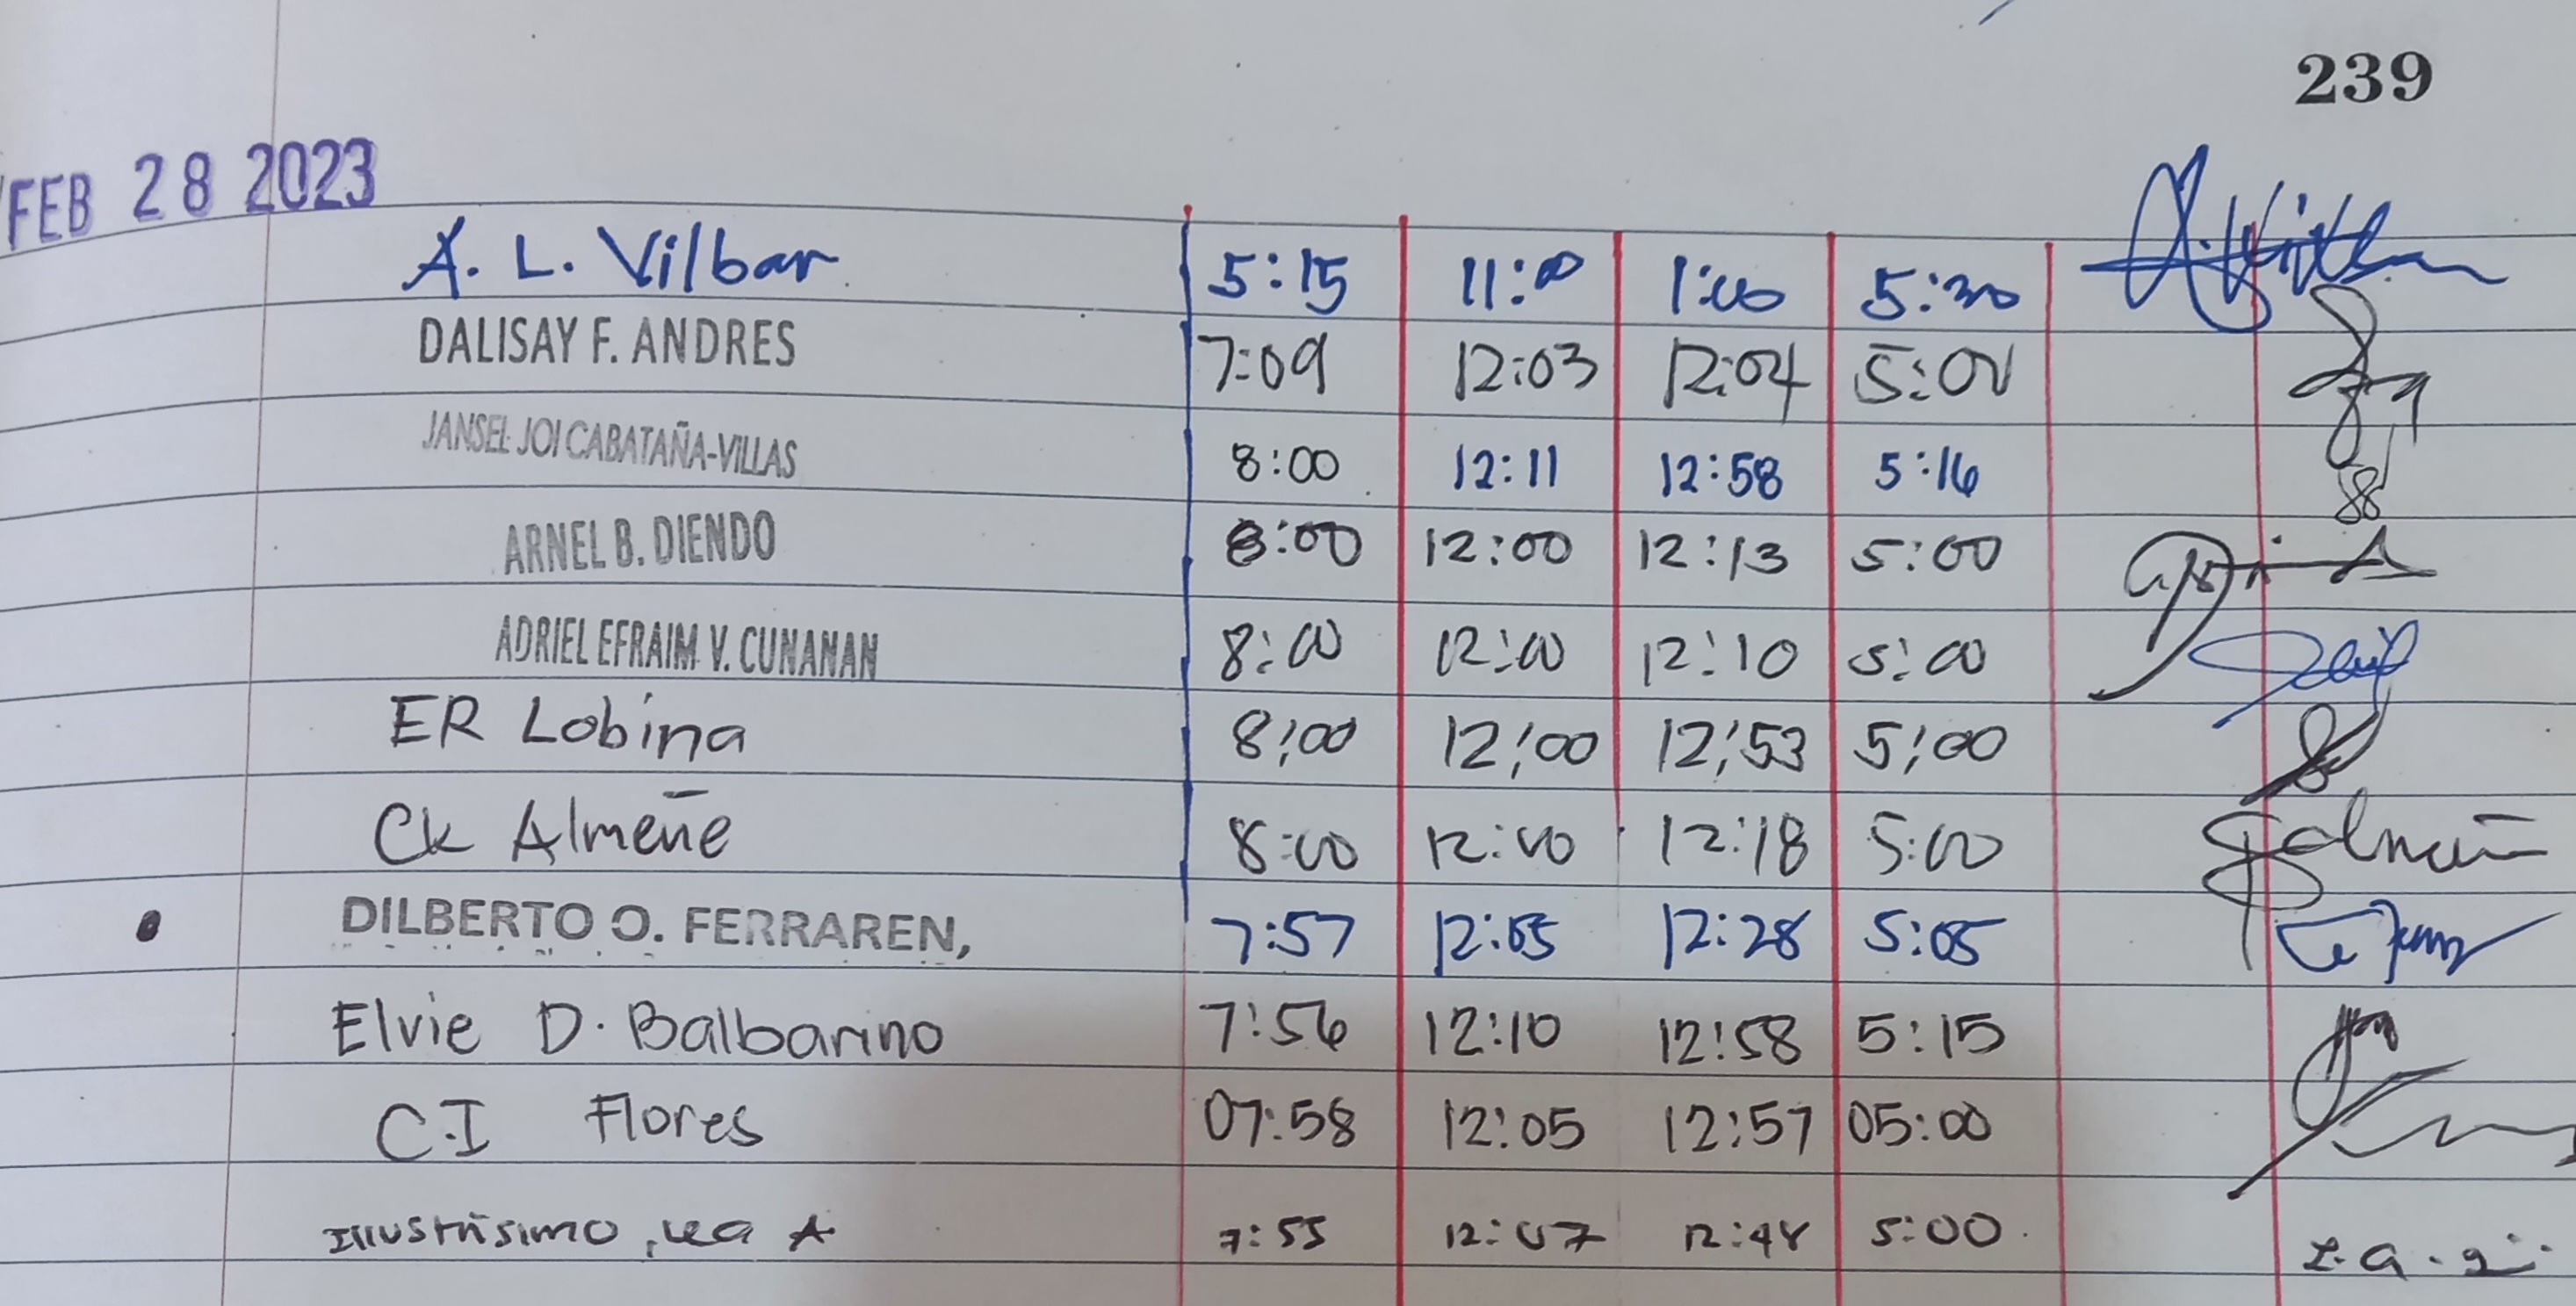 239
FEB 28 2023
A. L. Vilbar 5:15 11:00 1:00 5:30
DALISAY F. ANDRES 7:09 12:03 12:04 5:01
JANSEL JOI CABATAÑA-VILLAS 8:00 12:11 12:58 5:16
ARNEL B. DIENDO 8:00 12:00 12:13 5:00
ADRIEL EFRAIM V. CUNANAN 8:00 12:00 12:10 5:00
ER Lobina 8:00 12:00 12:53 5:00
CK Almeñe 8:00 12:00 12:18 5:00
DILBERTO O. FERRAREN, 7:57 12:05 12:28 5:05
Elvie D. Balbarino 7:56 12:10 12:58 5:15
C.I Flores 07:58 12:05 12:57 05:00
Illustrisimo, Lea A 7:55 12:07 12:48 5:00